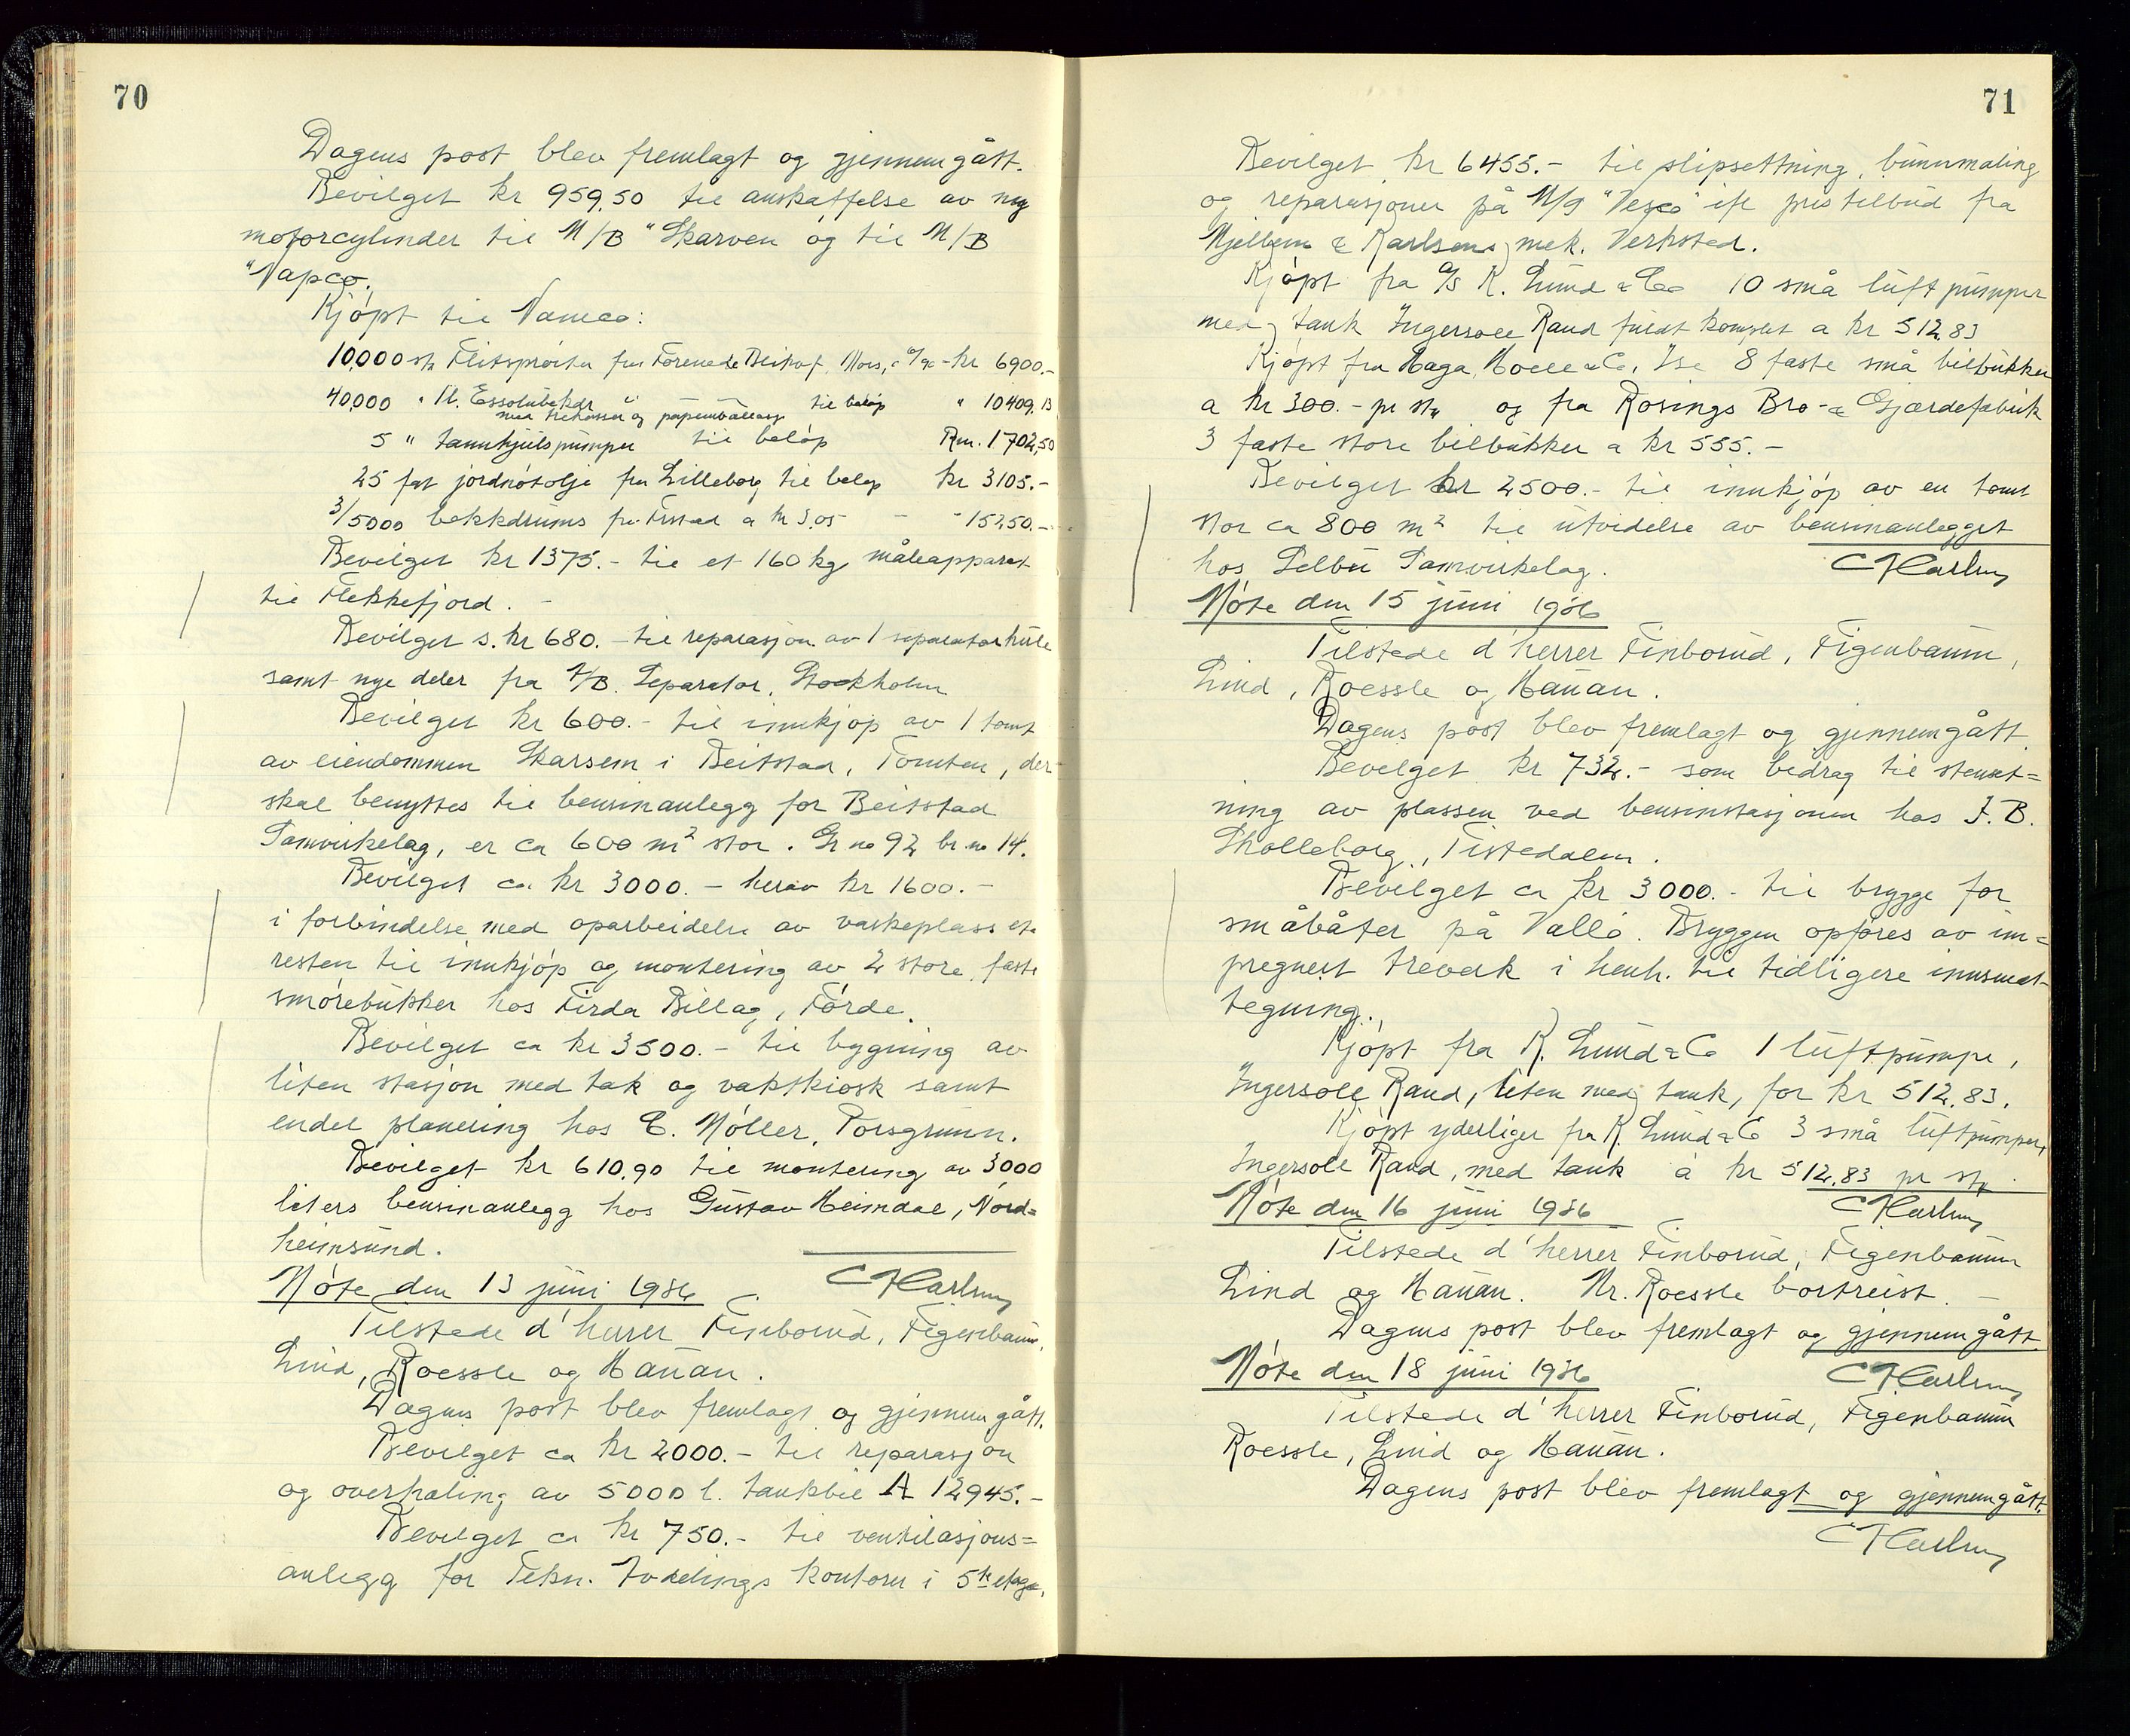 70
Dagens post blev fremlagt og gjennemgått.
Bevilget kr 959,50 til anskaffelse av ny
motorcylinder til M/B "Skarven og til M/B
"Napco.
Kjøpt til Namco:
10,000 stk Flitsprøiter fra Forenede Mors, kr 6900.-
40,000 " fl. Essolube til beløp " 10409.13
med trekasser og papemballasje
5 " tannhjulspumper til beløp Rm. 1702,50
25 fat jordnøtolje fra Lilleborg til beløp kr 3105.-
3/5000 bekkdrums fra a kr 3.05 - - 15250.-
Bevilget kr 1375.- til et 160 kg måleapparat
til Flekkefjord. -
Bevilget s. kr 680.- til reparasjon av 1 separatorkule
samt nye deler fra A/B. Separator, Stockholm
Bevilget kr 600.- til innkjøp av 1 tomt
av eiendommen Skarsem i Beitstad, Tomten, der
skal benyttes til bensinanlegg for Beitstad
Samvirkelag, er ca 600 m² stor. Gr no 92 br. no 14.
Bevilget ca kr 3000.- herav kr 1600.-
i forbindelse med oparbeidelse av vaskeplass etc
resten til innkjøp og montering av 2 store faste
smørebukker hos Firda Billag, Førde.
Bevilget ca kr 3500.- til bygning av
liten stasjon med tak og vaktkiosk samt
endel planering hos E. Møller, Porsgrunn.
Bevilget kr 610,90 til montering av 3000
liters bensinanlegg hos Gustav Heimdal, Nord=
heimsund.
Møte den 13 juni 1936
Tilstede d'herrer Finborud, Figenbaum,
Lind, Roessle og Hanan.
Dagens post blev fremlagt og gjennemgått.
Bevilget ca kr 2000.- til reparasjon
og overhaling av 5000 l. tankbil A 12945.-
Bevilget ca kr 750.- til ventilasjons=
anlegg for Tekn. Avdelings kontorer i 5te etage.
71
Bevilget kr 6455.- til slipsettning, bunnmaling
og reparasjoner på M/S "Vesco" ifl pristilbud fra
Mjellem & Karlsens mek. Verksted.
Kjøpt fra A/S K. Lund & Co 10 små luftpumper
med tank Ingersoll Rand fuldt komplet a kr 512.83
Kjøpt fra Haga, Moell & Co, Ise 8 faste små bilbukker
a kr 300.- pr stk og fra Rosings Bro- & Gjærdefabrik
3 faste store bilbukker a kr 555.-
Bevilget kr 2500.- til innkjøp av en tomt
stor ca 800 m² til utvidelse av bensinanlegget
hos Selbu Samvirkelag.
Møte den 15 juni 1936
Tilstede d'herrer Finborud, Figenbaum,
Lind, Roessle og Hanan.
Dagens post blev fremlagt og gjennemgått
Bevilget kr 732.- som bidrag til stenset=
ning av plassen ved bensinstasjonen hos J. B.
Skolleborg, Tistedalen.
Bevilget ca kr 3000.- til brygge for
småbåter på Vallø. Bryggen opføres av im=
pregnert treverk i henh. til tidligere innsendt
tegning.
Kjøpt fra K. Lund & Co 1 luftpumpe,
Ingersoll Rand, liten med tank, for kr 512,83.
Kjøpt yderliger fra K. Lund & Co 3 små luftpumper,
Ingersoll Rand, med tank á kr 512,83 pr stk
Møte den 16 juni 1936
Tilstede d'herrer Finborud, Figenbaum
Lind og Hanan. Mr. Roessle bortreist. -
Dagens post blev fremlagt og gjennemgått.
Møte den 18 juni 1936
Tilstede d'herrer Finborud, Figenbaum
Roessle, Lind og Hanan.
Dagens post blev fremlagt og gjennemgått.